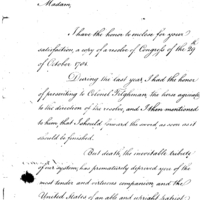 Madam,
I have the honor to enclose for your
satisfaction, a copy of a resolve of Congress of the 29th
of October 1781.
During the last year I had the honor
of presenting to Colonel Tilghman, the horse agreeable
to the direction of the resolve, and I then mentioned
to him, that I should forward the sword, as soon as it
should be finished.
But death, the inevitable tribute
of our system, has prematurely deprived you of the
most tender and virtuous companion, and the
United States of an able and upright patriot